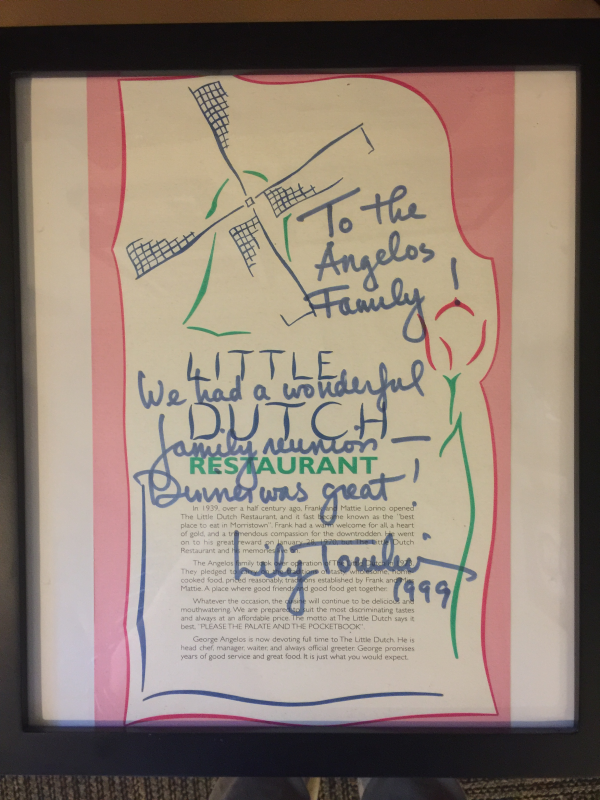 To the
Angelos
Family !
LITTLE
We had a wonderful
DUTCH
family reunion —
RESTAURANT
Dinner was great !
In 1939, over a half century ago, Frank and Mattie Lorino opened
The Little Dutch Restaurant, and it fast became known as the "best
place to eat in Morristown". Frank had a warm welcome for all, a heart
of gold, and a tremendous compassion for the downtrodden. He went
on to his great reward on January but The Little Dutch
Restaurant and his memories
Lily Tomlin
1999
The Angelos family took over operation of The Little Dutch in
They pledged to of tasty, wholesome, home
cooked food, priced reasonably, traditions established by Frank and
Mattie. A place where good friends and good food get together.
Whatever the occasion, the cuisine will continue to be delicious and
mouthwatering. We are prepared to suit the most discriminating tastes
and always at an affordable price. The motto at The Little Dutch says it
best. "PLEASE THE PALATE AND THE POCKETBOOK".
George Angelos is now devoting full time to The Little Dutch. He is
head chef, manager, waiter, and always official greeter. George promises
years of good service and great food. It is just what you would expect.